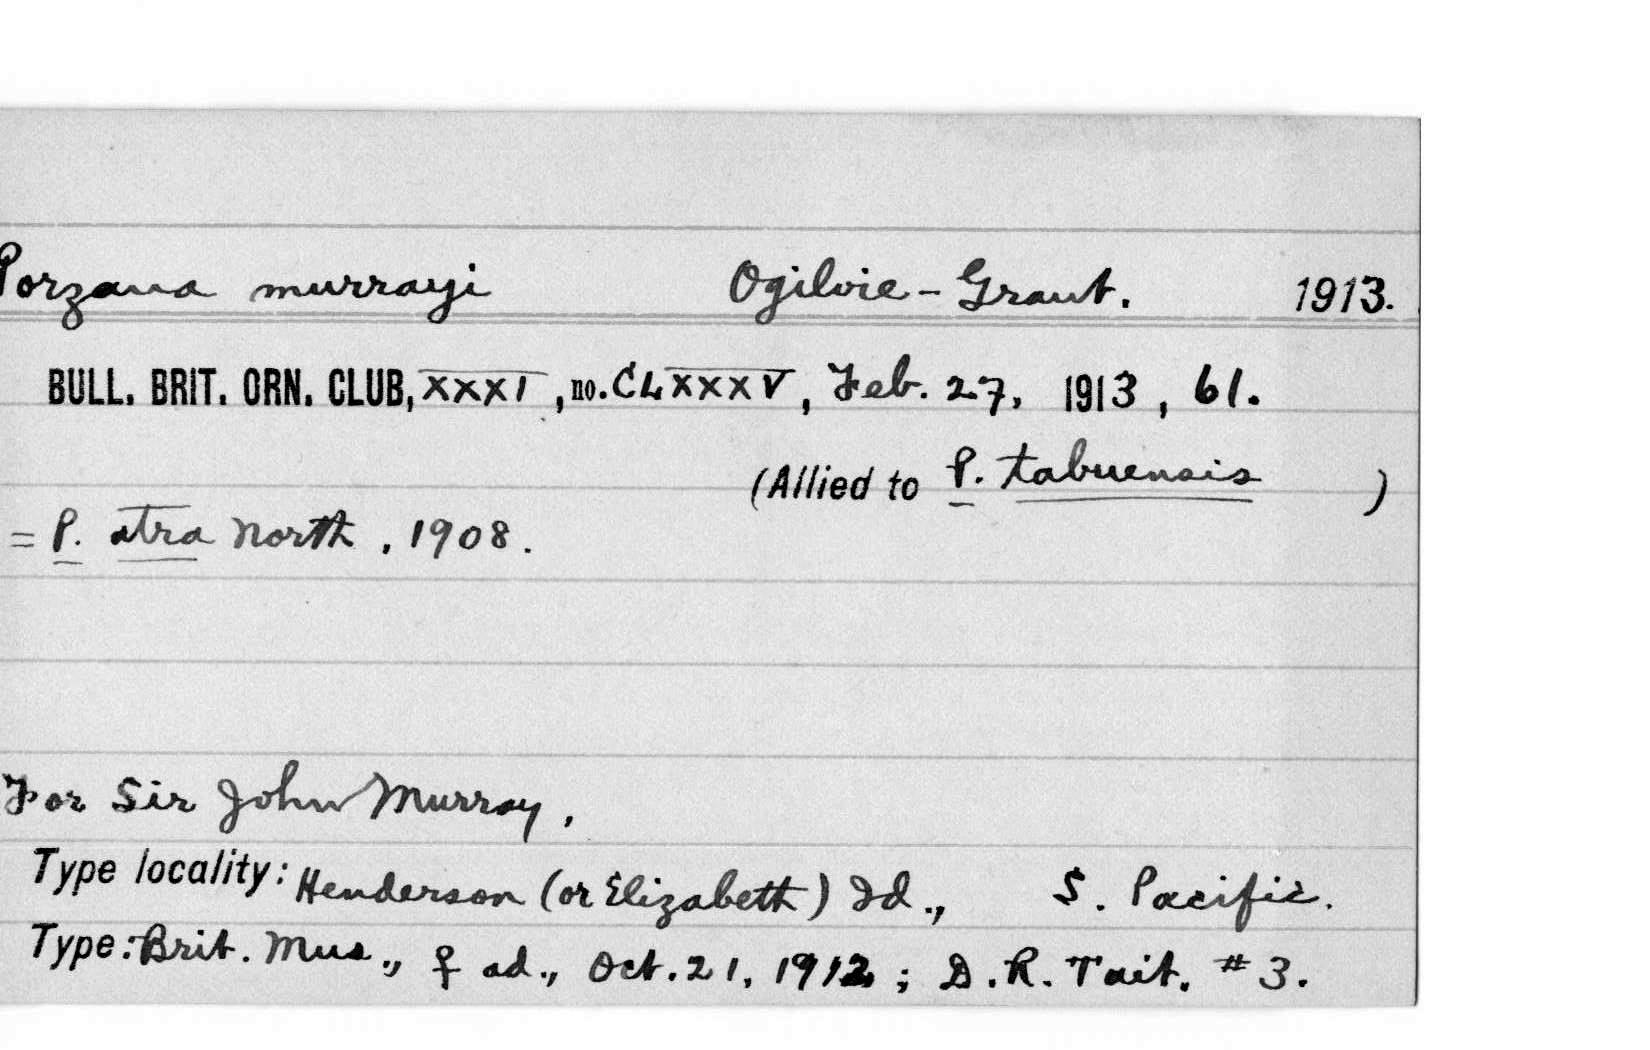 Porzana murrayi Ogilvie-Grant. 1913.
BULL. BRIT. ORN. CLUB, XXXI, no. CLXXXV, Feb. 27, 1913, 61.
(Allied to P. tabuensis )
= P. atra North, 1908.
For Sir John Murray,
Type locality: Henderson (or Elizabeth) Id., S. Pacific.
Type: Brit. Mus., ♀ ad., Oct. 21, 1912; D. R. Tait. #3.